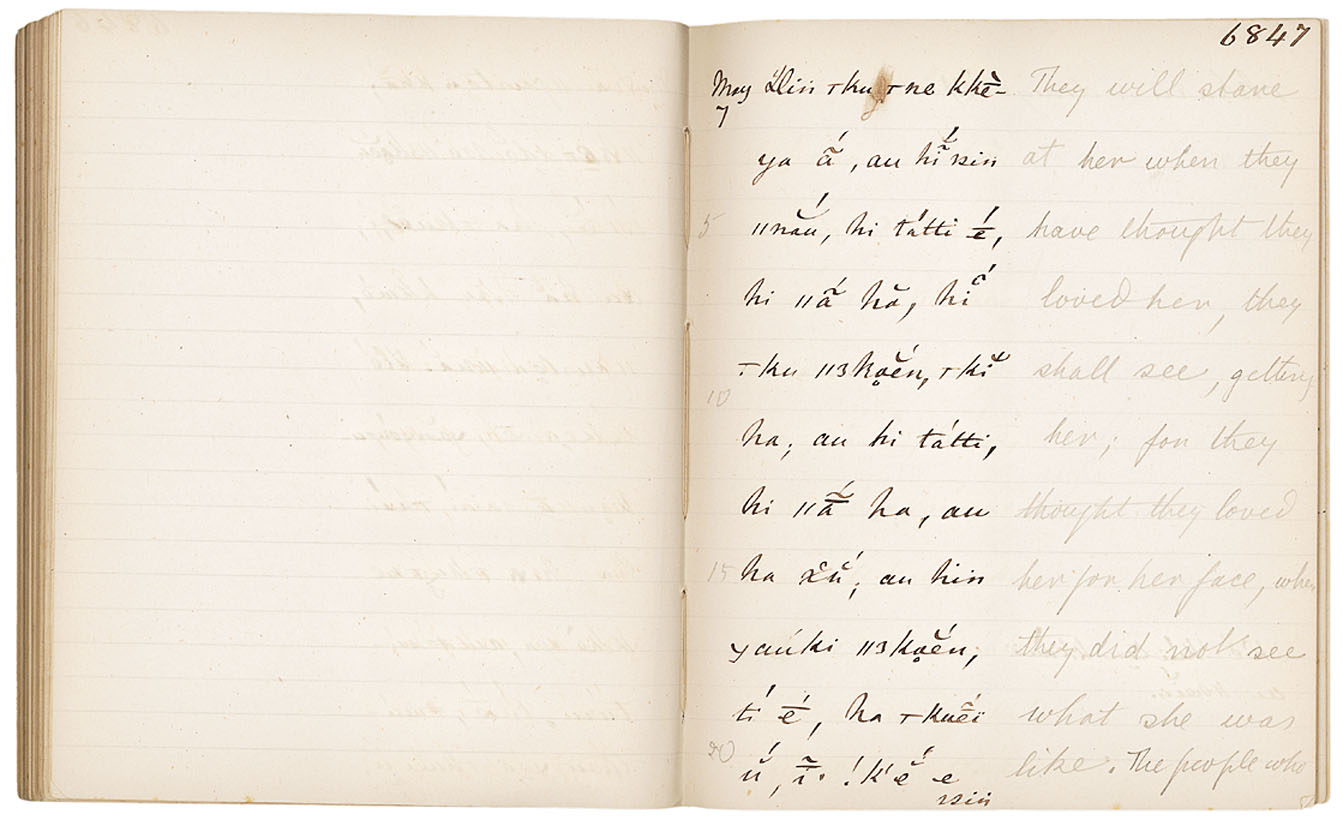 6847
May Hin ┬ku ┬ne kkē̆- They will stare
7
ya ã́, au hĭ̃́ ssin at her when they
5 ǁnắu, hi tátti é̱, have thought they
hi ǁã́ hă, hiã́ loved her, they
┬ku ǁɜkọĕ́n, ┬kĭ shall see, getting
10
ha; au hi tátti, her; for they
hi ǁã́ ha, au thought they loved
15 ha xŭ́; au hin her for her face, when
yaúki ǁɜkọĕ́n, they did not see
tí é̱, ha ┬kuẽ́ï what she was
20 ŭ́, ĩ. !k'ĕ́ e like. The people who
ssin